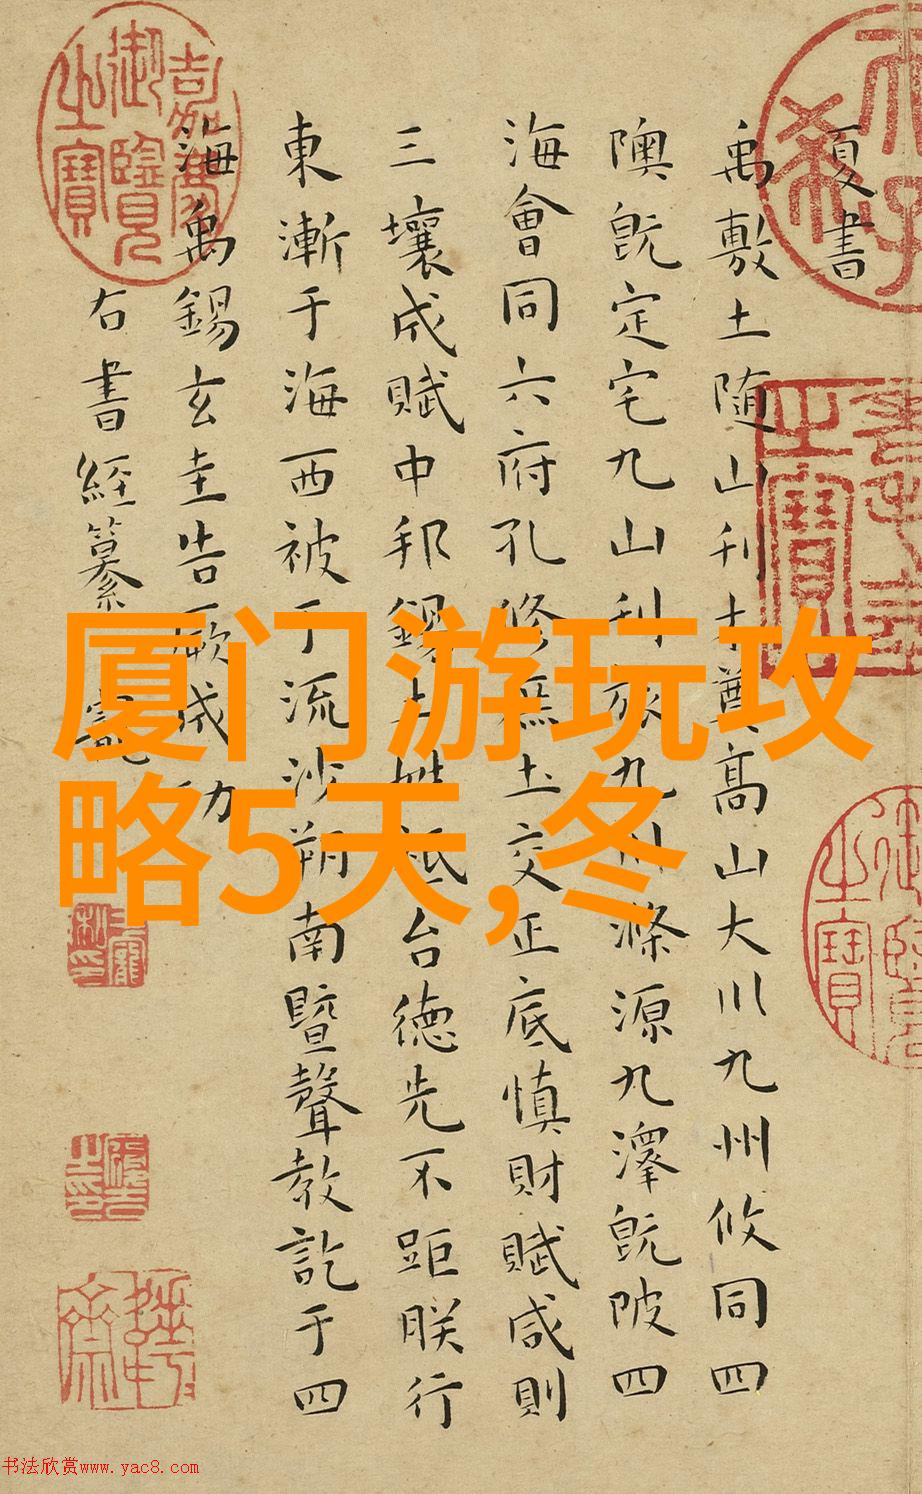 夏書
禹敷土随山刊木奠高山大川九州攸同四
隩既定宅九山刊旅九川滌源九澤既陂四
海會同六府孔修庶土交正底慎財賦咸則
三壤成賦中邦錫土姓祗台德先不距朕行
東漸于海西被于流沙朔南暨聲教訖于四
海禹錫玄圭告厥成功
右書經纂
嘉慶御覽之寶
厦门游玩攻
略5天,冬
书法欣赏www.yac8.com